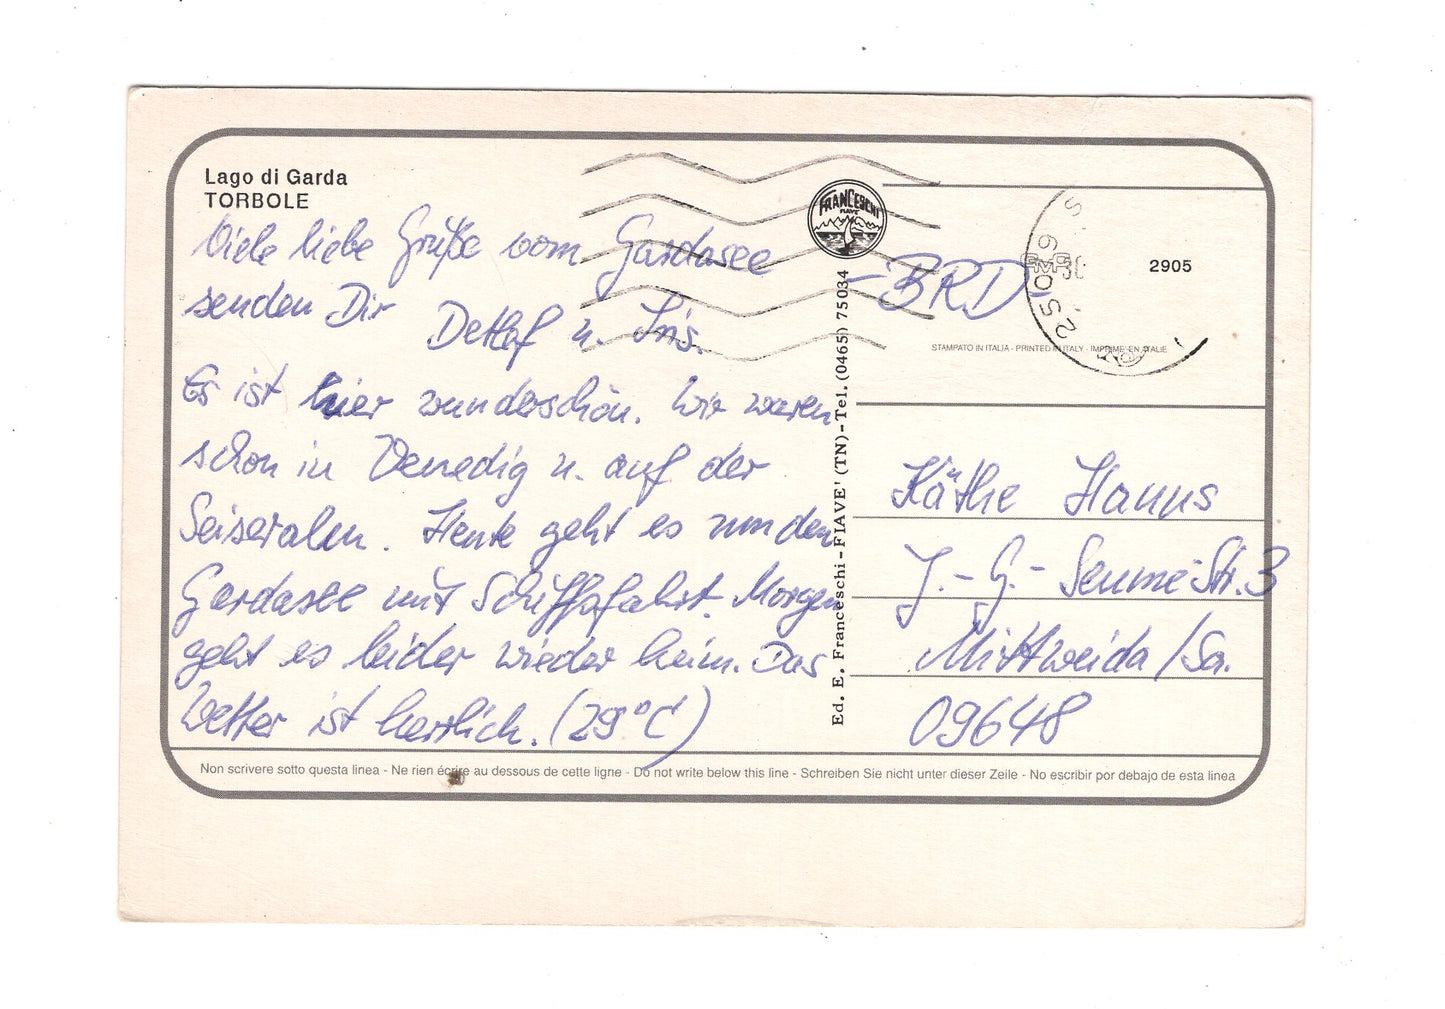 Lago di Garda
TORBOLE
Viele liebe Grüße vom Gardasee
senden Dir
Detlef u. Iris.
Es ist hier wunderschön. Wir waren
schon in Venedig u. auf der
Seiseralm. Heute geht es um den
Gardasee mit Schifffahrt. Morgen
geht es leider wieder heim. Das
Wetter ist herrlich. (29°C)
FRANCESCHI
FIAVE
Ed. E. Franceschi - FIAVE' (TN) - Tel. (0465) 75034
2905
- BRD -
STAMPATO IN ITALIA - PRINTED IN ITALY - IMPRIME EN ITALIE
Käthe Hanns
J.-G.-Seume-Str. 3
Mittweida/Sa.
09648
Non scrivere sotto questa linea - Ne rien écrire au dessous de cette ligne - Do not write below this line - Schreiben Sie nicht unter dieser Zeile - No escribir por debajo de esta linea